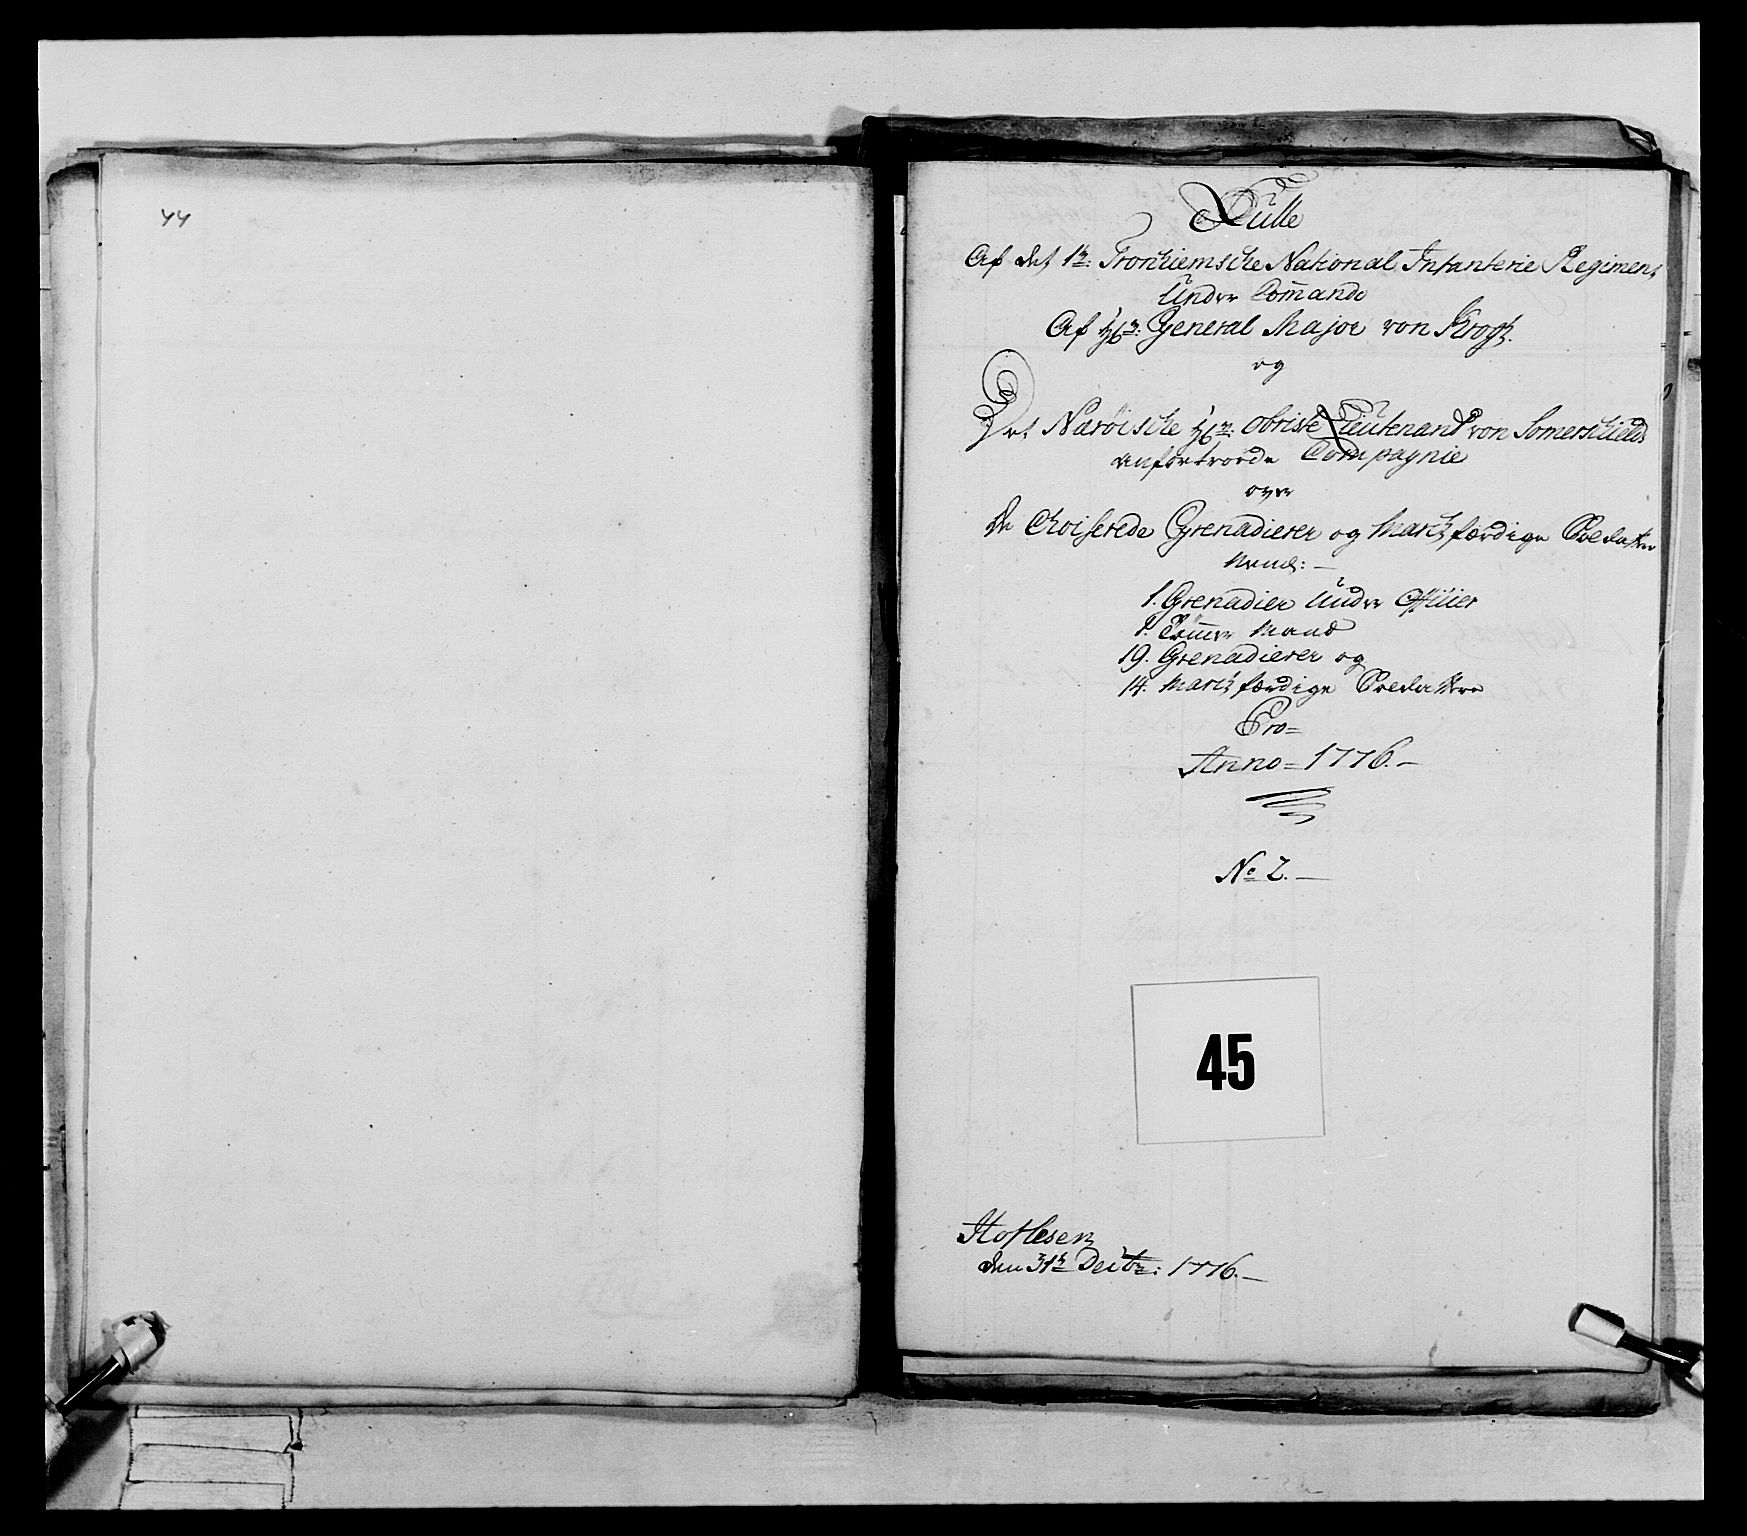 44
Rulle
Af det 1te: Tronhiemsche National Infanterie Regiment
Under Commando
Af Hr: General Major von Krogh.
og
Det Nærøische Hr: Obriste Lieutenant von Somerschields
anfortroede Compagnie
over
De Choiserede Grenadierer og Marchfærdige Soldater
Nemel: —
1. Grenadier Under Officier
1. Tømmer Mand
19. Grenadierer og
14. Marchfærdige Soldatter
Pro=
Anno=1776.—
No 2.—
45
Hoflesen
den 31te Decbr: 1776.—